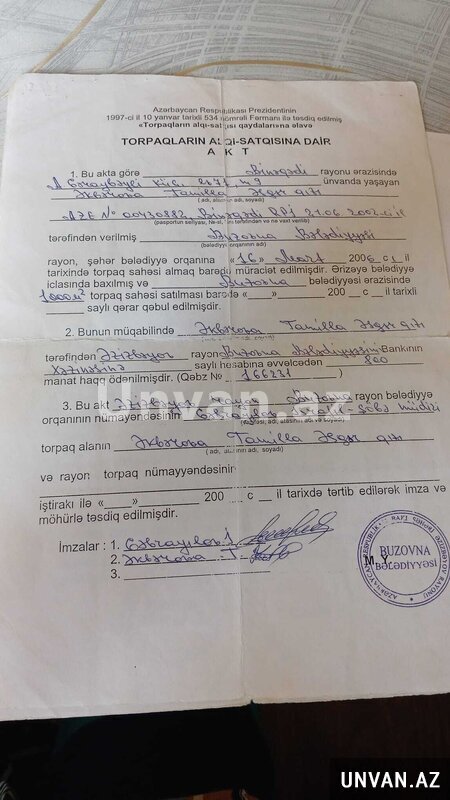 Azərbaycan Respublikası Prezidentinin
1997-ci il 10 yanvar tarixli 534 nömrəli Fərmanı ilə təsdiq edilmiş
«Torpaqların alqı-satqısı qaydaları»na əlavə
TORPAQLARIN ALQI-SATQISINA DAİR
A K T
1. Bu akta görə Binəqədi rayonu ərazisində
küç. 2171, m 9 ünvanda yaşayan
Əkbərova Tamilla Əsgər qızı
( adı, atasının adı, soyadı)
AZE № 00430882, Binəqədi RPİ 21.06.2002-ci il
tərəfindən verilmiş Buzovna Bələdiyyəsi
(bələdiyyə orqanının adı)
rayon, şəhər bələdiyyə orqanına «16» Mart 2006 c i il
tarixində torpaq sahəsi almaq barədə müraciət edilmişdir. Ərizəyə bələdiyyə
iclasında baxılmış və Buzovna bələdiyyəsi ərazisində
1000 m² torpaq sahəsi satılması barədə « » 200 c il tarixli
saylı qərar qəbul edilmişdir.
2. Bunun müqabilində Əkbərova Tamilla Əsgər qızı
tərəfindən Əzizbəyov rayon Buzovna Bələdiyyəsinin Bankının
Xəzinəsinə saylı hesabına əvvəlcədən 800
manat haqq ödənilmişdir. (Qəbz № 166231 )
3. Bu akt Əzizbəyov rayon Buzovna rayon bələdiyyə
orqanının nümayəndəsinin Cəbrayılov şöbə müdiri
(vəzifəsi, adı, atasının adı və soyadı)
torpaq alanın Əkbərova Tamilla Əsgər qızı
( adı, atasının adı, soyadı)
və rayon torpaq nümayyəndəsinir
iştirakı ilə « » 200 c il tarixdə tərtib edilərək imza və
möhürlə təsdiq edilmişdir.
İmzalar : 1. Cəbrayılov İ
2. Əkbərova T.
3.
M. Y.
BUZOVNA
BƏLƏDİYYƏSİ
AZƏRBAYCAN RESPUBLİKASI
Unvan.az
UNVAN.AZ